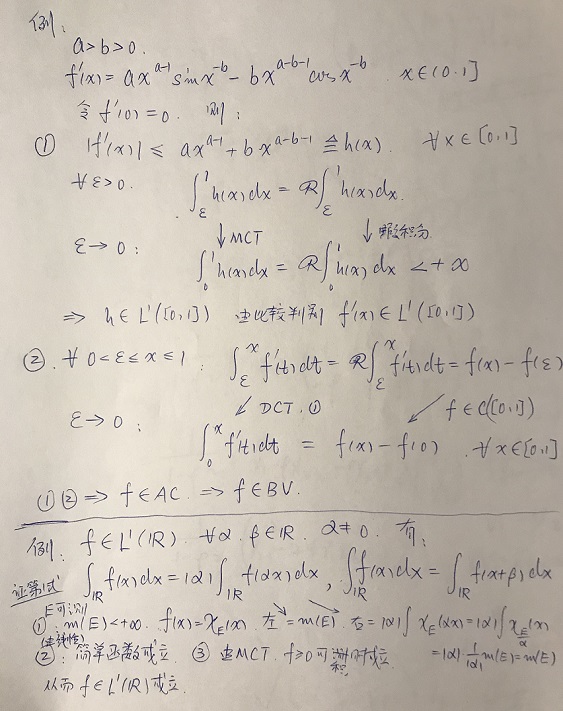 例:
a>b>0.
f'(x) = ax^{a-1} sin x^{-b} - bx^{a-b-1} cos x^{-b} x∈(0,1]
令 f'(0)=0. 则:
① |f'(x)| ≤ ax^{a-1} + bx^{a-b-1} ≜ h(x). ∀x∈[0,1]
∀ε>0. ∫_ε^1 h(x)dx = R∫_ε^1 h(x)dx.
↓MCT ↓瑕积分
ε→0: ∫_0^1 h(x)dx = R∫_0^1 h(x)dx <+∞
⇒ h∈L^1([0,1]) 由比较判别 f'(x)∈L^1([0,1])
②. ∀ 0<ε≤x≤1: ∫_ε^x f'(t)dt = R∫_ε^x f'(t)dt = f(x)-f(ε)
ε→0: ↙ DCT. ① ↙ f∈C([0,1])
∫_0^x f'(t)dt = f(x)-f(0) . ∀x∈[0,1]
①②⇒ f∈AC. ⇒ f∈BV.
例: f∈L^1(ℝ). ∀α.β∈ℝ. α≠0. 有:
证第1式 ∫_ℝ f(x)dx = |α|∫_ℝ f(αx)dx, ∫_ℝ f(x)dx = ∫_ℝ f(x+β)dx
E可测
① m(E)<+∞. f(x)=χ_E(x). 左=m(E). 右=|α|∫χ_E(αx)=|α|∫χ_{E/α}(x)
=|α|·1/|α| m(E)=m(E)
(由线性)
②: 简单函数成立. ③ 由MCT. f≥0可积时成立.
从而 f∈L^1(ℝ)成立.